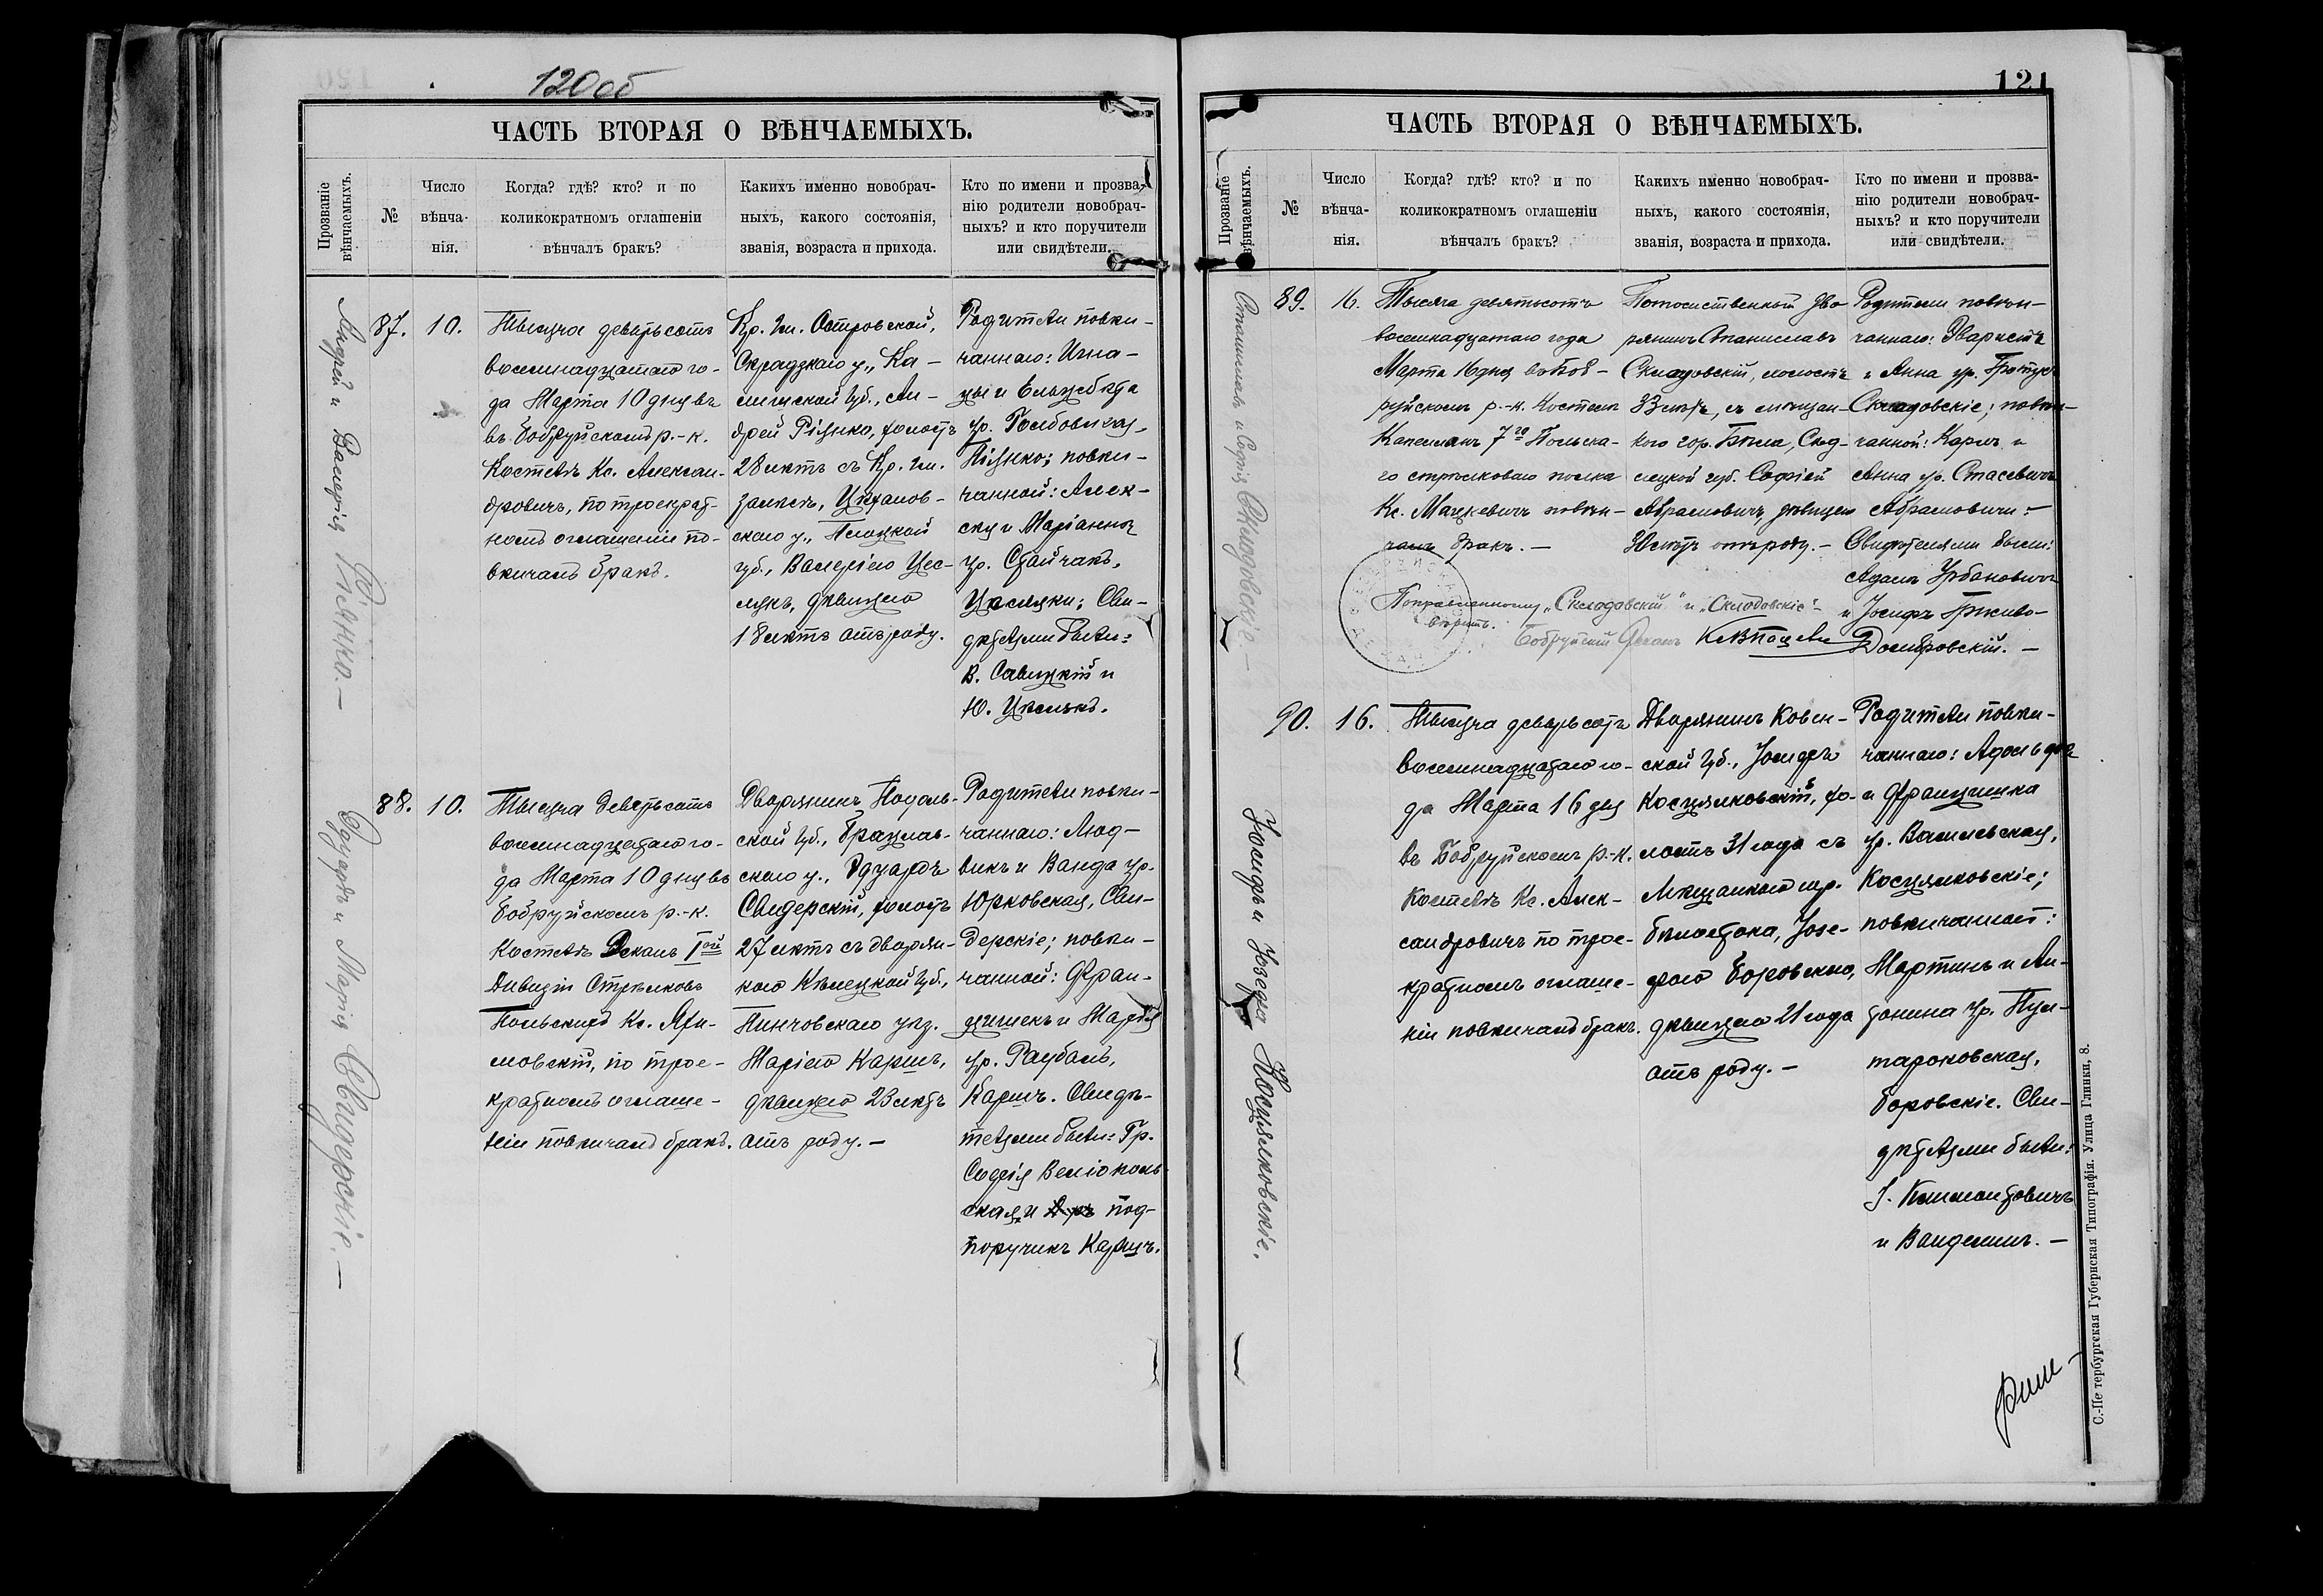 120об
ЧАСТЬ ВТОРАЯ О ВѢНЧАЕМЫХЪ.
Прозваніе вѣнчаемыхъ.
№
Число вѣнча- нія.
Когда? гдѣ? кто? и по коликократномъ оглашеніи вѣнчалъ бракъ?
Какихъ именно новобрач- ныхъ, какого состоянія, званія, возраста и прихода.
Кто по имени и прозва- нію родители новобрач- ныхъ? и кто поручители или свидѣтели.
Андрей и Валерія
87. 10.
Тысяча девятьсотъ
восемнадцатаго го-
да Марта 10 дня въ
въ Бобруйскомъ р.-к.
Костелѣ Кс. Алексан-
дровичъ, по троекрат-
номъ оглашеніи по-
вѣнчалъ бракъ.
Кр. гм. Островской,
Сѣрадзкаго у., Ка-
лишской губ., Ан-
дрей, холостъ
28 лѣтъ съ Кр. гм.
Цѣханов-
скаго у., Плоцкой
губ., Валеріею Цес-
лукъ, дѣвицею
18 лѣтъ отъ роду.
Родители повѣн-
чаннаго: Игна-
цы и Ельжбѣта
ур.
повѣн-
чанной: Алек-
сы и Маріанны
ур. Стайчакъ,
Сви-
дѣтелями были:
В. Савицкій и
Ю.
Эдуардъ и Марія Свидерскіе. —
88. 10.
Тысяча девятьсотъ
восемнадцатаго го-
да Марта 10 дня въ
Бобруйскомъ р.-к.
Костелѣ Деканъ Iой
Дивизіи Стрѣлковъ
Польскихъ Кс. Яхи-
мовскій, по трое-
кратномъ оглаше-
ніи повѣнчалъ бракъ.
Дворянинъ Подоль-
ской губ., Брацлав-
скаго у., Эдуардъ
Свидерскій, холостъ
27 лѣтъ съ дворян-
кою Кѣлецкой губ.,
Пинчовскаго уѣз.
Маріею Каршъ,
дѣвицею 23 лѣтъ
отъ роду. —
Родители повѣн-
чаннаго: Люд-
викъ и Ванда ур.
Юрковская, Сви-
дерскіе; повѣн-
чанной: Фран-
цишекъ и Марія
ур. Раубаль,
Каршъ. Свидѣ-
телями были: Гр.
Софія Веліополь-
ская и под-
поручикъ Каршъ.
121
ЧАСТЬ ВТОРАЯ О ВѢНЧАЕМЫХЪ.
Прозваніе вѣнчаемыхъ.
№
Число вѣнча- нія.
Когда? гдѣ? кто? и по коликократномъ оглашеніи вѣнчалъ бракъ?
Какихъ именно новобрач- ныхъ, какого состоянія, званія, возраста и прихода.
Кто по имени и прозва- нію родители новобрач- ныхъ? и кто поручители или свидѣтели.
Станиславъ и Софія Склодовскіе. —
89. 16.
Тысяча девятьсотъ
восемнадцатаго года
Марта 16 дня въ Боб-
руйскомъ р.-к. Костелѣ
Капеланъ 7го Польска-
го стрѣлковаго полка
Кс. Мацкевичъ повѣн-
чалъ бракъ. —
Потомственный дво-
рянинъ Станиславъ
Склодовскій, холостъ
33 лѣтъ, съ мѣщан-
кого гор. Бѣла, Сѣд-
лецкой губ. Софіей
Абрамовичъ, дѣвицею
30 лѣтъ отъ роду. —
Родители повѣн-
чаннаго: Эваристъ
и Анна ур.
Склодовскіе; повѣн-
чанной: Карлъ и
Анна ур. Стасевичъ
Абрамовичи. —
Свидѣтелями были:
Адамъ Урбановичъ
и Іосифъ Грживо-
Домбровскій. —
„Склодовскій“ и „Склодовскіе“ —
вѣрить.
Бобруйскій Деканъ
90. 16.
Іосифъ и Юзефа Косцялковскіе.
Тысяча девятьсотъ
восемнадцатаго го-
да Марта 16 дня
въ Бобруйскомъ р.-к.
Костелѣ Кс. Алек-
сандровичъ по трое-
кратномъ оглаше-
ніи повѣнчалъ бракъ.
Дворянинъ Ковен-
ской губ., Іосифъ
Косцялковскій, хо-
лостъ 31 года съ
Мѣщанкою гор.
Бѣлостока, Іозе-
фою Боровскою,
дѣвицею 21 года
отъ роду. —
Родители повѣн-
чаннаго: Адольфъ
и Францишка
ур. Василевская,
Косцялковскіе;
повѣнчанной:
Мартинъ и Ан-
тонина ур.
Боровскіе. Сви-
дѣтелями были:
І. Климонтовичъ
и Вандеминъ. —
С.-Петербургская Губернская Типографія. Улица Глинки, 8.